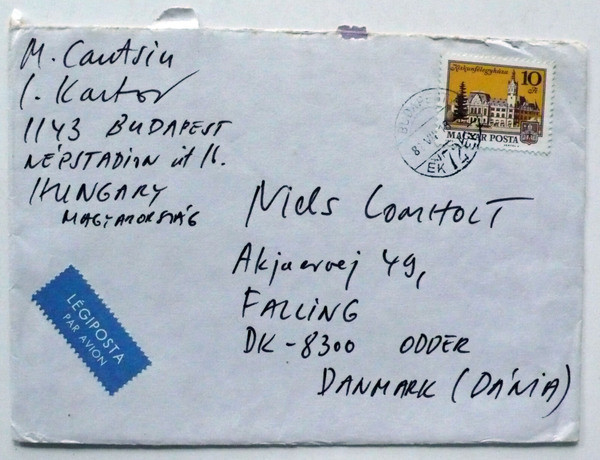 M. Cantsin
I. Kantor
1143 BUDAPEST
NÉPSTADION út
HUNGARY
MAGYARORSZÁG
Kiskunfélegyháza
10 Ft
MAGYAR POSTA
BUDAPEST
Niels Lomholt
Akjaervej 49,
FALLING
DK-8300 ODDER
DANMARK (DÁNIA)
LÉGIPOSTA
PAR AVION